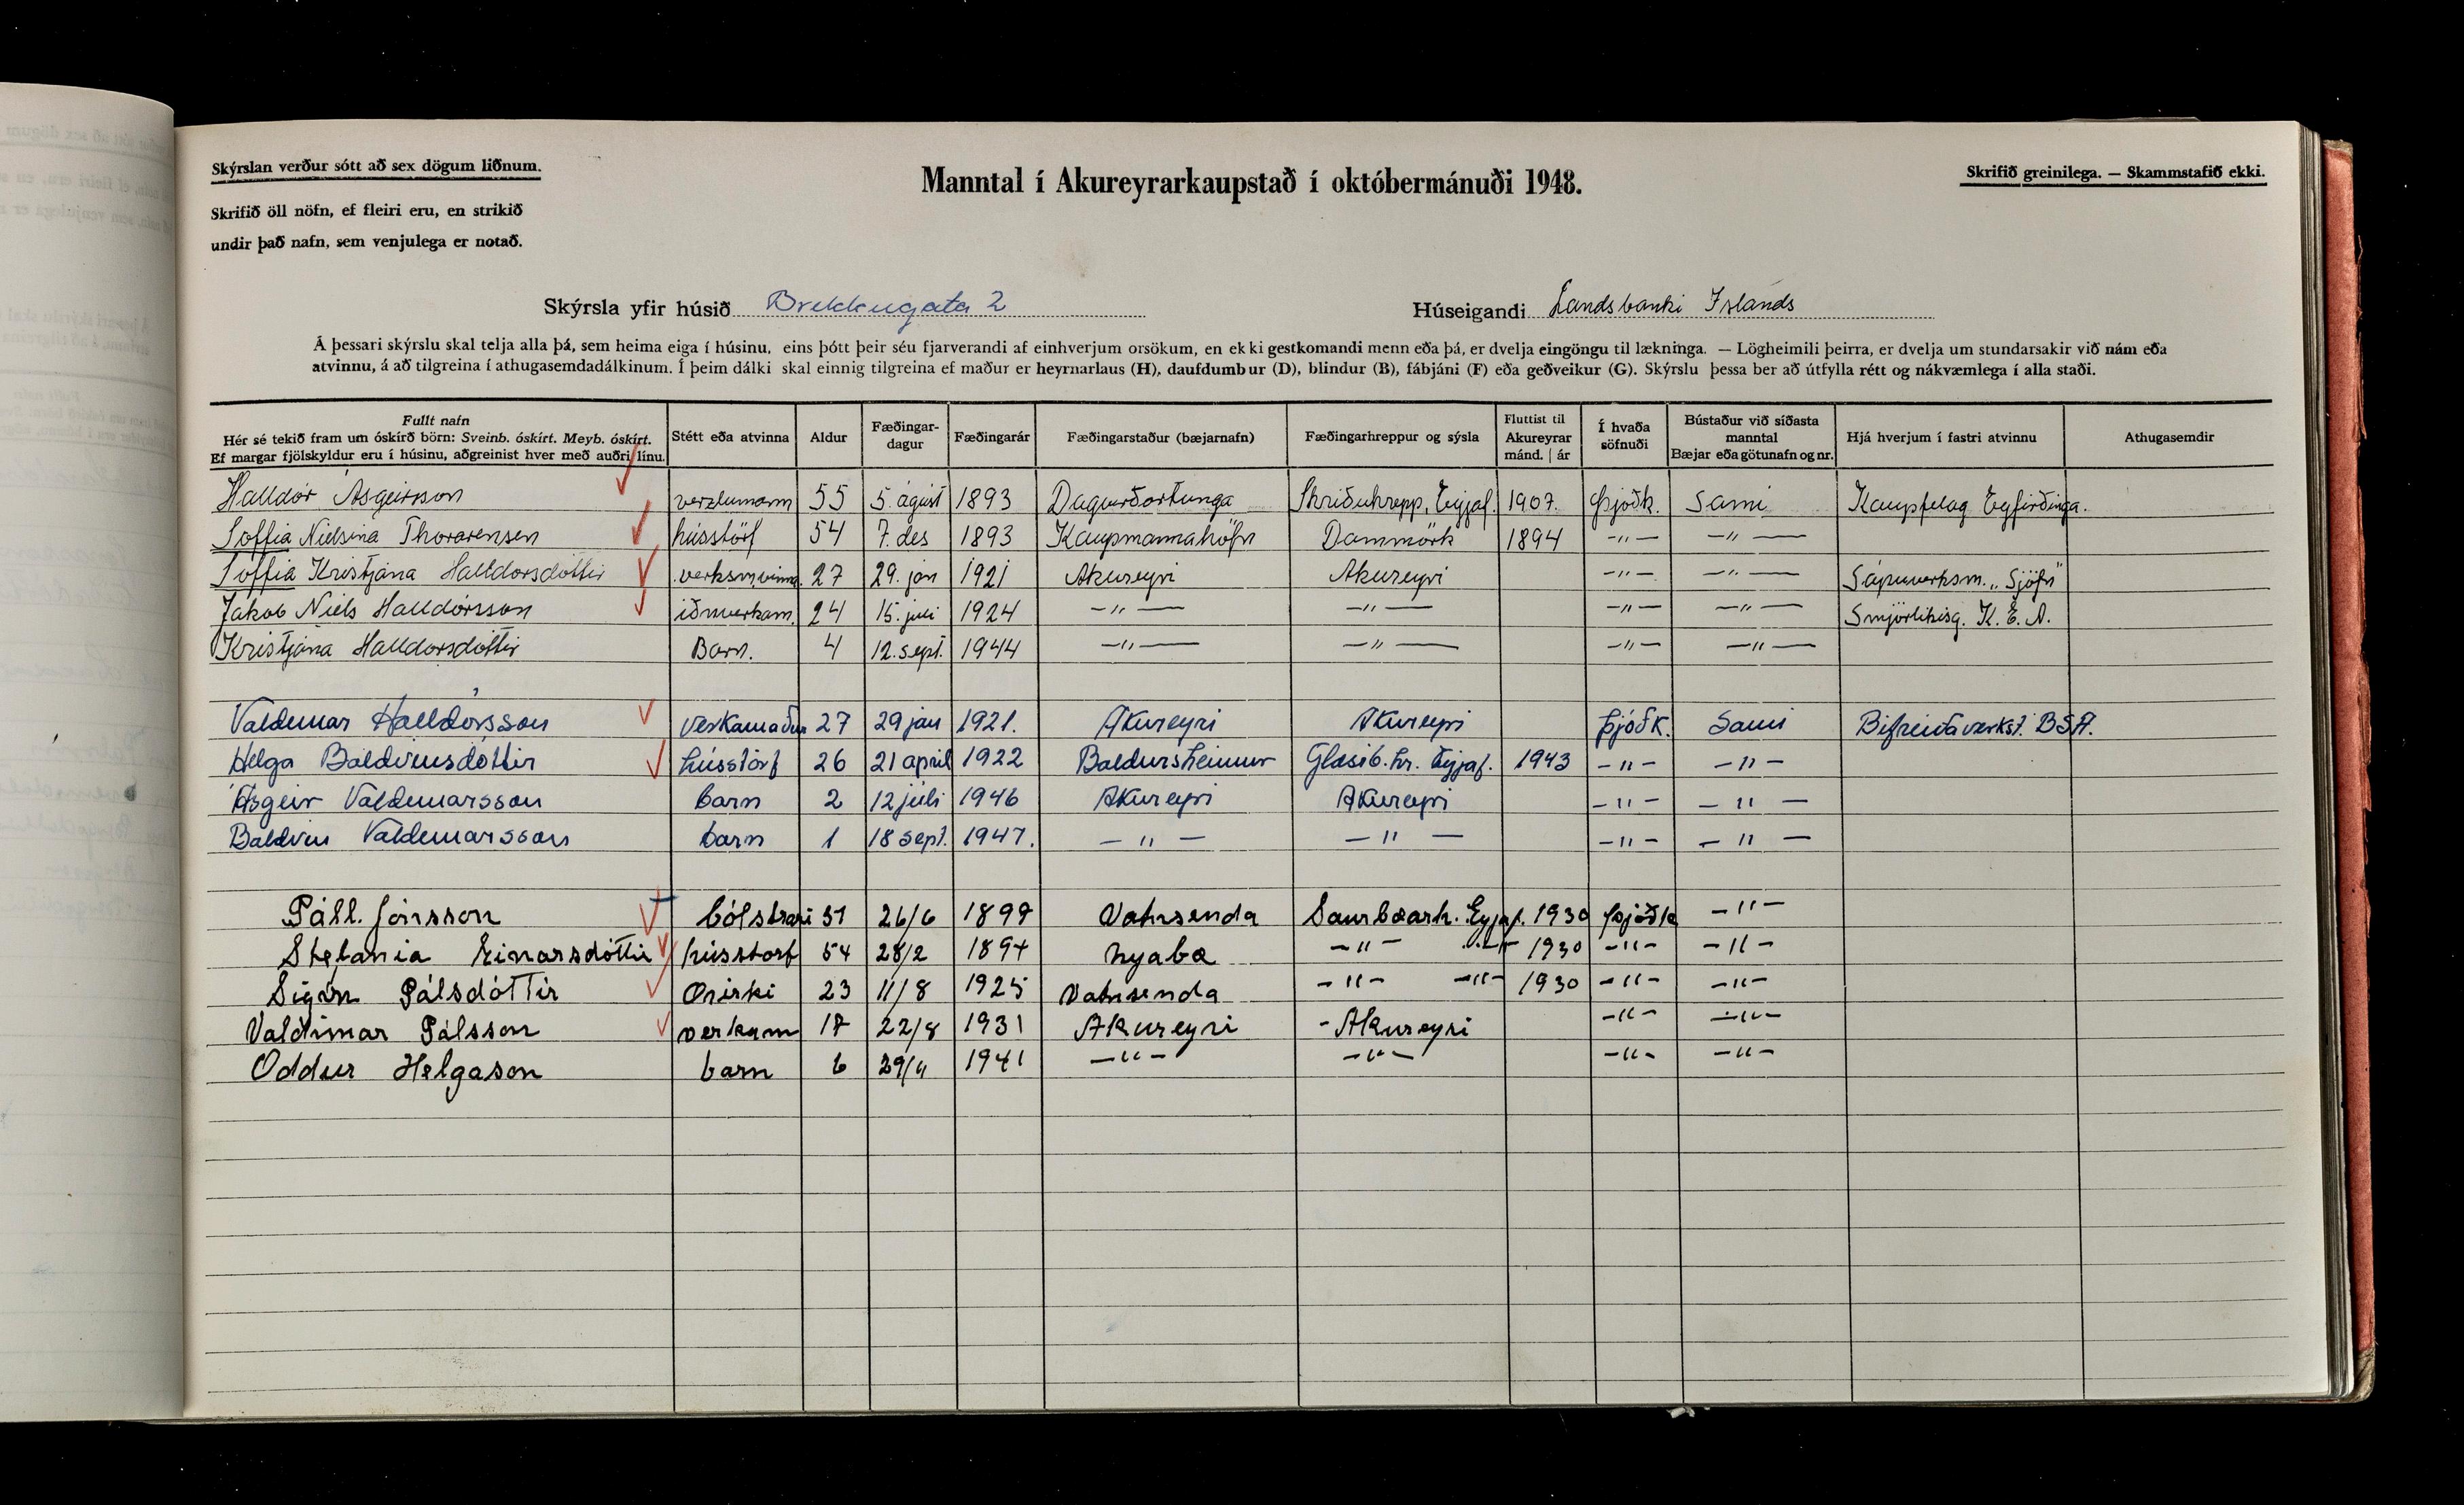 Skýrslan verður sótt að sex dögum liðnum.
Manntal í Akureyrarkaupstað í októbermánuði 1948.
Skrifið greinilega. — Skammstafið ekki.
Skrifið öll nöfn, ef fleiri eru, en strikið
undir það nafn, sem venjulega er notað.
Skýrsla yfir húsið Brekkugata 2 Húseigandi Landsbanki Íslands
Á þessari skýrslu skal telja alla þá, sem heima eiga í húsinu, eins þótt þeir séu fjarverandi af einhverjum orsökum, en ekki gestkomandi menn eða þá, er dvelja eingöngu til lækninga. — Lögheimili þeirra, er dvelja um stundarsakir við nám eða
atvinnu, á að tilgreina í athugasemdadálkinum. Í þeim dálki skal einnig tilgreina ef maður er heyrnarlaus (H), daufdumbur (D), blindur (B), fábjáni (F) eða geðveikur (G). Skýrslu þessa ber að útfylla rétt og nákvæmlega í alla staði.
Fullt nafn
Hér sé tekið fram um óskírð börn: Sveinb. óskírt. Meyb. óskírt.
Ef margar fjölskyldur eru í húsinu, aðgreinist hver með auðri línu.
Stétt eða atvinna
Aldur
Fæðingar-
dagur
Fæðingarár
Fæðingarstaður (bæjarnafn)
Fæðingarhreppur og sýsla
Fluttist til
Akureyrar
mánd. | ár
Í hvaða
söfnuði
Bústaður við síðasta
manntal
Bæjar eða götunafn og nr.
Hjá hverjum í fastri atvinnu
Athugasemdir
Halldór Ásgeirsson verzlumann 55 5. ágúst 1893 Dagurðartunga Skriðuhrepp, Eyjaf. 1907. Þjóðk. Sami Kaupfelag Eyfirðinga.
Soffia Nielsina Thorarensen hússtörf 54 7. des 1893 Kaupmannahöfn Danmörk 1894 -"- -"-
Soffia Kristjana Halldorsdóttir verksm.vinna. 27 29. jan 1921 Akureyri Akureyri -"- -"- Sápuverksm. „Sjöfn"
Jakob Niels Halldórsson iðnverkam. 24 15. juli 1924 -"- -"- -"- -"- Smjörlikisg. K. E. A.
Kristjana Halldorsdóttir Barn. 4 12. sept. 1944 -"- -"- -"- -"-
Valdemar Halldórsson verkamaður 27 29 jan 1921. Akureyri Akureyri Þjóðk. Sami Bifreiðaverkst. BSA.
Helga Baldvinsdóttir hússtörf 26 21 apríl 1922 Baldursheimur Glæsib.hr. Eyjaf. 1943 -"- -"-
Ásgeir Valdemarsson barn 2 12 júli 1946 Akureyri Akureyri -"- -"-
Baldvin Valdemarsson barn 1 18 sept. 1947. -"- -"- -"- -"-
Páll. Jónsson bólstrari 51 26/6 1897 Vatnsenda Saurbæarh. Eyjaf. 1930 Þjóðk -"-
Stefania Einarsdóttir hússtorf 54 28/2 1894 Nyabæ -"- -"- 1930 -"- -"-
Sigrún Pálsdóttir 23 11/8 1925 Vatnsenda -"- -"- 1930 -"- -"-
Valdimar Pálsson verkam 17 22/8 1931 Akureyri -Akureyri -"- -"-
Oddur Helgason barn 6 1941 -"- -"- -"- -"-